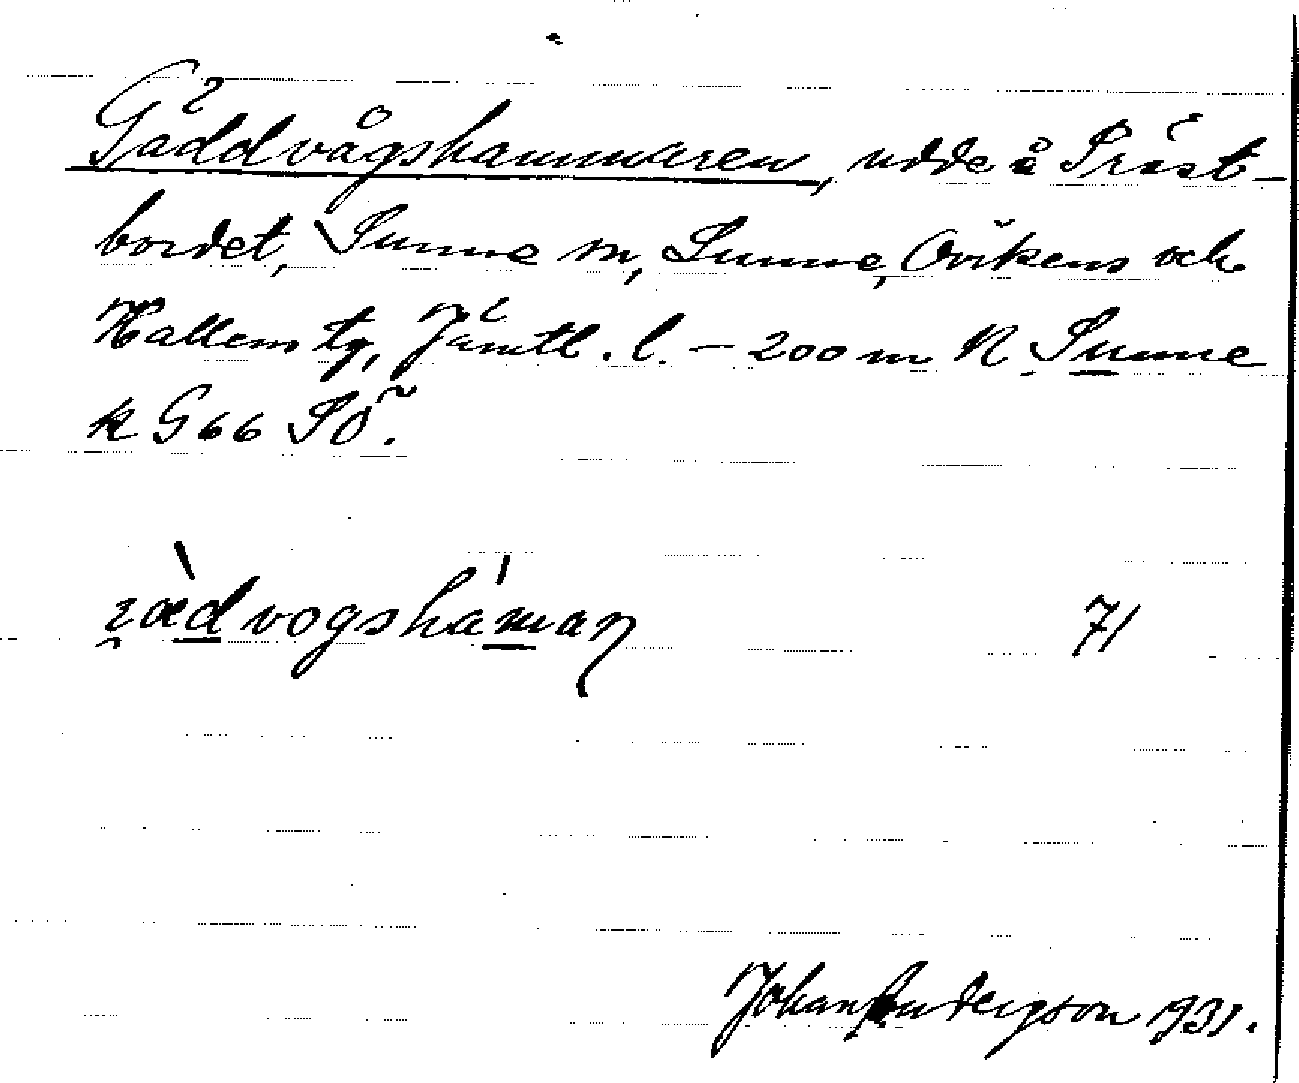 Gäddvågshammaren, udde å Präst-
bordet, Sunne sn, Sunne, Ovikens och
Hallens tg, Jämtl. l. - 200 m N Sunne
k G66 SÖ.
jædvogshamaṇ 71
Johan Anderson 1931.